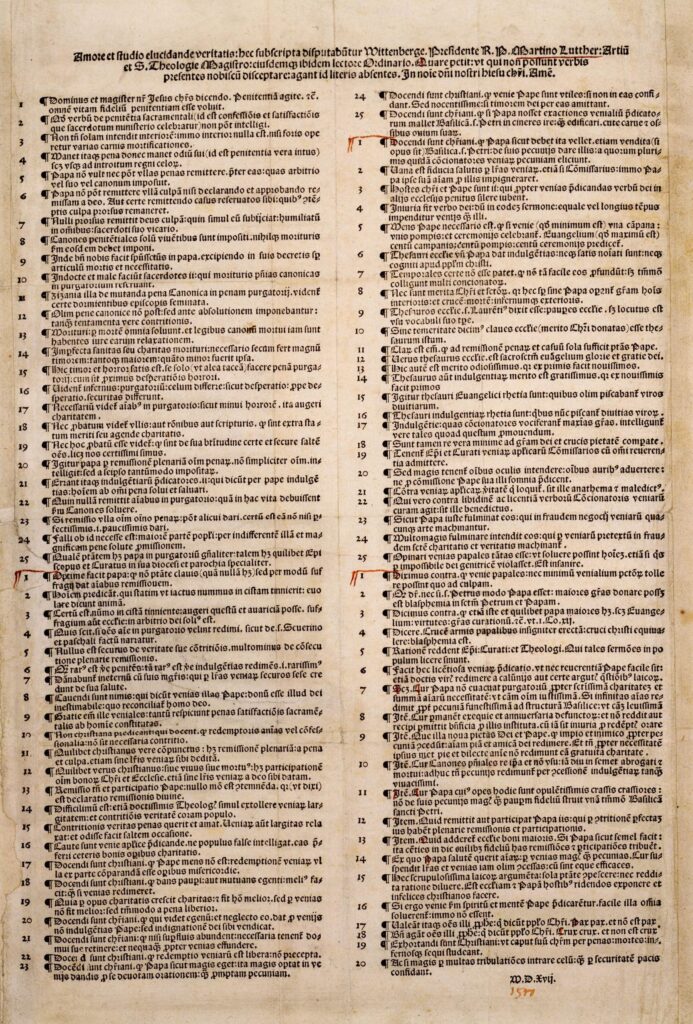 Amore et studio elucidande veritatis: hec subscripta disputabũtur Wittenberge. Presidente R. P. Martino Lutther: Artiũ
et S. Theologie Magistro: eiusdemqꝫ ibidem lectore Ordinario. Quare petit: vt qui non possunt verbis
presentes nobiscũ disceptare: agant id literis absentes. In noĩe dñi nostri hiesu chr̃i. Amẽ.
1 ¶Dominus et magister nr̃ Jesus chr̃s dicendo. Penitentiã agite. ⁊c̃.
omnẽ vitam fidelium penitentiam esse voluit.
2 ¶Qđ verbũ de penitẽtia sacramentali (id est confessiõis et satisfactiõis
que sacerdotum ministerio celebratur) non põt intelligi.
3 ¶Non tm̃ solam intendit interiorẽ: immo interior nulla est. nisi foris ope
retur varias carnis mortificationes.
4 ¶Manet itaqꝫ pena donec manet odiũ sui (id est penitentia vera intus)
scꝫ vsqꝫ ad introitum regni celorum.
5 ¶Papa nõ vult nec põt vllas penas remittere. p̃ter eas: quas arbitrio
vel suo vel canonum imposuit.
6 ¶Papa nõ põt remittere vllã culpã nisi declarando et approbando re-
missam a deo. Aut certe remittendo casus reseruatos sibi: quibꝰ cõtẽ-
ptis culpa prorsus remaneret.
7 ¶Nulli prorsus remittit deus culpã: quin simul eũ subijciat: humiliatũ
in omnibus: sacerdoti suo vicario.
8 ¶Canones penitẽtiales solũ viuẽtibus sunt impositi. nihilqꝫ morituris
fm̃ eosdem debet imponi.
9 ¶Inde bñ nobis facit spũssctũs in papa: excipiendo in suis decretis sp̃
articulũ mortis et necessitatis.
10 ¶Indocte et male faciũt sacerdotes ij: qui morituris pñias canonicas
in purgatorium reseruant.
11 ¶Zizania illa de mutanda pena Canonica in penam purgatorij. vident̃
certe dormientibus episcopis seminata.
12 ¶Olim pene canonice nõ post: sed ante absolutionem imponebantur:
tanqꝫ tentamenta vere contritionis.
13 ¶Morituri: p̱ mortẽ omnia soluunt. et legibus canonũ mortui iam sunt
habentes iure earum relaxationem.
14 ¶Imperfecta sanitas seu charitas morituri: necessario secum fert magnũ
timorem: tantoqꝫ maiorem: quãto minor: fuerit ipsa.
15 ¶Hic timor et horror: satis est. se solo (vt alia taceã) facere penã purga-
torij: cum sit p̱ximus desperatiõis horrori.
16 ¶Videntẽ infernus: purgatoriũ: celum differre: sicut desperatio: ꝓpe des-
peratio. securitas differunt.
17 ¶Necessariũ videt̃ aĩabꝰ in purgatorio: sicut minui horrorẽ. ita augeri
charitatem.
18 ¶Nec ꝓbatum videt̃ vllis: aut rõnibus aut scripturis. ꝙ sint extra sta-
tum meriti seu agende charitatis.
19 ¶Nec hoc ꝓbatũ esse videt̃: ꝙ sint de sua btĩtudine certe et secure saltẽ
oẽs. licꝫ nos certissimi simus.
20 ¶Igitur papa p̱ remissionẽ plenariã oĩm penaꝝ. nõ simpliciter oĩm. in-
telligit: sed a seipso tantũmodo impositaꝝ.
21 ¶Errant itaqꝫ indulgẽtiarũ p̃dicatores ij: qui dicũt per pape indulgẽ
tias: hoĩem ab oĩni pena solui et saluari.
22 ¶Quin nullã remittit aĩabus in purgatorio: quã in hac vita debuissent
fm̃ Canones soluere.
23 ¶Si remissio vlla oĩm oĩno penaꝝ: põt alicui dari. certũ est eã nõ nisi p̱
fectissimis. i. paucissimis dari.
24 ¶Falli ob id necesse est: maiorẽ partẽ popli: per indifferentẽ illã et ma-
gnificam pene solute ꝓmissionem.
25 ¶Qualẽ p̃tatẽm hꝫ papa in purgatoriũ gñaliter: talem hꝫ quilibet Epi
scopus et Curatus in sua diocesi et parochia specialiter.
1 ¶Optime facit papa: ꝙ nõ p̃tate clauis (quã nullã hꝫ) sed per modũ suf
fragij dat aĩabus remissionem.
2 ¶Hoĩem predicãt. qui statim vt iactus nummus in cistam tinnierit: euo
lare dicunt animã.
3 ¶Certũ est. nũmo in cistã tinniente: augeri questũ et auariciã posse. suf-
fragium aũt ecclesie: in arbitrio dei solĩꝰ est.
4 ¶Quis scit. si oẽs aĩe in purgatorio velint redimi. sicut de s. Seuerino
et paschali factũ narratur.
5 ¶Nullus est securus de veritate sue cõtritiõis. multominus de cõsecu
tione plenarie remissionis.
6 ¶Qm̃ rarꝰ est ꝟe penitẽs: tã rarꝰ est ꝟe indulgẽtias redimẽs. i. rarissimꝰ
7 ¶Dãnabunt̃ ineternũ cũ suis mgr̃is: qui p̱ lr̃as veniaꝝ securos sese cre
dunt de sua salute.
8 ¶Cauendi sunt nimis: qui dicũt venias illas Pape: donũ esse illud dei
inestimabile: quo reconciliat̃ homo deo.
9 ¶Gratie em̃ ille veniales: tantũ respiciunt penas satisfactiõis sacramẽ
talis ab homine constitutas.
10 ¶Non christiana predicant: qui docent. ꝙ redemptoris aĩas vel cõfes-
sionalia: nõ sit necessaria contritio.
11 ¶Quilibet christianꝰ vere cõpunctus: hꝫ remissionẽ plenariã: a pena
et culpa. etiam sine lr̃is veniaꝝ sibi debitã.
12 ¶Quilibet verus christianus: siue viuus siue mortuꝰ: hꝫ participationẽ
oĩm bonoꝝ Chr̃i et Ecclesie. etiã sine lr̃is veniaꝝ a deo sibi datam.
13 ¶Remissio tñ et participatio Pape: nullo mõ est ꝯtemnẽda. qꝛ (vt dixi)
est declaratio remissionis diuine.
14 ¶Difficilimũ est: etiã doctissimis Theologꝭ simul extollere veniaꝝ lar-
gitatem: et contritiõis veritatẽ coram populo.
15 ¶Contritionis veritas penas querit et amat. Veniaꝝ aũt largitas rela
xat: et odisse facit saltem occasione.
16 ¶Caute sunt venie aplĩce p̃dicande. ne populus false intelligat. eas p̃-
ferri ceteris bonis opibus charitatis.
17 ¶Docendi sunt christiani. ꝙ Pape mens nõ est: redemptionẽ veniaꝝ vl-
la ex parte cõparandã esse opibus misericordie.
18 ¶Docendi sunt christiani. ꝙ dans paupi: aut mutuans egenti: meliꝰ fa-
cit: ꝙ si venias redimeret.
19 ¶Quia p̱ opus charitatis crescit charitas: ⁊ fit hõ melior. sed p̱ venias
nõ fit melior: sed tm̃modo a pena liberior.
20 ¶Docendi sunt chr̃iani. ꝙ qui videt egenũ: et neglecto eo. dat p̱ venijs
nõ indulgẽtias Pape: sed indignationẽ dei sibi vendicat.
21 ¶Docendi sunt chr̃iani. ꝙ nisi supfluis abundent: necessaria tenent̃ do-
mui sue retinere: et neqꝫqꝫ ꝓpter venias effundere.
22 ¶Docendi sunt christiani. ꝙ redemptio veniaꝝ est libera: nõ precepta.
23 ¶Docẽdi sunt chr̃iani. ꝙ Papa sicut magis eget: ita magis optat in ve
nijs dandis p̱ se deuotam orationem: ꝙ̃ promptam pecuniam.
24 ¶Docendi sunt chr̃iani. ꝙ venie Pape sunt vtiles: si non in eas confi-
dant. Sed nocentissime: si timorem dei per eas amittant.
25 ¶Docendi sunt chr̃iani. ꝙ si Papa nosset exactiones venialiũ p̃dicato-
rum mallet Basilicã. s. Petri in cineres ire: ꝙ̃ edificari. cute carne ⁊ os-
sibus ouium suaꝝ.
1 ¶Docendi sunt chr̃iani. ꝙ Papa sicut debet ita vellet. etiam vendita (si
opus sit) Basilicã. s. Petri: de suis pecunijs dare illis: a quoꝝ plurimis
quidã cõcionatores veniaꝝ pecuniam eliciunt.
2 ¶Vana est fiducia salutis p̱ lr̃as veniaꝝ. etiã si Cõmissarius: immo Pa-
pa ipse suã aĩam p̱ illis impigneraret.
3 ¶Hostes chr̃i et Pape sunt ij: qui ꝓpter venias p̃dicandas verbũ dei in
alijs ecclesijs penitus silere iubent.
4 ¶Iniuria fit verbo dei: dũ in eodẽ sermone: equale vel longius tẽpus
impenditur venijs ꝙ̃ illi.
5 ¶Mens Pape necessario est. ꝙ si venie (qđ minimum est) vna cãpana:
vnis pompis: et ceremonijs celebrant̃. Euangelium (qđ maximũ est)
centũ campanis: centũ pompis: centũ ceremonijs predicet̃.
6 ¶Thesauri ecclie vñ Papa dat indulgẽtias: neqꝫ satis noĩati sunt: neqꝫ
cogniti apud pp̃lm chr̃i.
7 ¶Temporales certe nõ esse patet. ꝙ nõ tã facile eos ꝓfundũt: sꝫ tm̃mõ
colligunt multi concionatoꝝ.
8 ¶Nec sunt merita Chr̃i et sctõꝝ. qꝛ hec sp̃ sine Papa op̱ant̃ gr̃am hoĩs
interioris: et crucẽ: mortẽ: infernumqꝫ exterioris.
9 ¶Thesauros ecclie. s. Laurẽtiꝰ dixit esse: paupes ecclie. sꝫ locutus est
vsu vocabuli suo tp̃e.
10 ¶Sine temeritate dicimꝰ claues ecclie (merito Chr̃i donatas) esse the
saurum istum.
11 ¶Claꝝ est em̃. ꝙ ad remissionẽ penaꝝ et casuũ sola sufficit p̃tãs Pape.
12 ¶Verus thesaurus ecclie. est sacrosctm̃ euãgelium glorie et gratie dei.
13 ¶Hic aũt est merito odiosissimus. qꝛ ex primis facit nouissimos.
14 ¶Thesaurus aũt indulgentiaꝝ merito est gratissimus. qꝛ ex nouissimis
facit primos
15 ¶Igitur thesauri Euangelici rhetia sunt: quibus olim piscabant̃ viros
diuitiarum.
16 ¶Thesauri indulgentiaꝝ rhetia sunt: q̃bus nũc piscant̃ diuitias viroꝝ.
17 ¶Indulgẽtie: quas cõcionatores vociferant̃ maxĩas gr̃as. intelligunt̃
vere tales quoad questum ꝓmouendum.
18 ¶Sunt tamen re vera minime ad gr̃am dei et crucis pietatẽ compate.
19 ¶Tenent̃ Epĩ et Curati veniaꝝ aplĩcarũ Cõmissarios cũ oĩni reuerẽ-
tia admittere.
20 ¶Sed magis tenent̃ oĩbus oculis intendere: oĩbus auribꝰ aduertere:
ne p̱ cõmissione Pape sua illi somnia p̃dicent.
21 ¶Cõtra veniaꝝ aplĩcaꝝ ꝟitatẽ qˀ loquit̃. sit ille anathema ⁊ maledictꝰ.
22 ¶Qui vero contra libidinẽ ac licentiã verboꝝ Cõcionatoris veniarũ
curam agit: sit ille benedictus.
23 ¶Sicut Papa iuste fulminat eos: qui in fraudem negocij veniaꝝ quacũ
qꝫ arte machinantur.
24 ¶Multomagis fulminare intendit eos: qui p̱ veniaꝝ pretextũ in frau-
dem sctẽ charitatis et veritatis machinant̃.
25 ¶Opinari venias papales tãtas esse: vt soluere possint hoĩẽꝫ. etiã si qˀs
p̱ impossibile dei genitricẽ violasset. Est insanire.
1 ¶Diximus contra. ꝙ venie papales: nec minimũ venialium pctõꝝ tolle
re possint quo ad culpam.
2 ¶Qđ dr̃. nec si. s. Petrus modo Papa esset: maiores gr̃as donare posset
est blasphemia in sctm̃ Petrum et Papam.
3 ¶Dicimus contra. ꝙ etiã iste et quilibet papa maiores hꝫ. scꝫ Euange-
lium: virtutes: gr̃as curationũ. ⁊c̃. vt. i. Co. xij.
4 ¶Dicere. Crucẽ armis papalibus insigniter erectã: cruci christi equiua-
lere: blasphemia est.
5 ¶Rationẽ reddent Epĩ: Curati: et Theologi. Qui tales sermões in po-
pulum licere sinunt.
6 ¶Facit hec licẽtiosa veniaꝝ p̃dicatio. vt nec reuerentiã Pape facile sit:
etiã doctis virꝭ redimere a calũnijs aut certe argutꝭ q̃stiõibꝰ laicoꝝ.
7 ¶Scꝫ. Cur Papa nõ euacuat purgatoriũ ꝓpter sctissimã charitatẽ et
summã aĩaꝝ necessitatẽ: vt cãm oĩm iustissimã. Si infinitas aĩas re-
dimit ꝓpt̃ pecuniã funestissimã ad structurã Basilice: vt cãm leuissimã
8 ¶Itẽ. Cur p̱manẽt exequie et anniuersaria defunctoꝝ: et nõ reddit aut
recipi p̱mittit bñficia p̱ illis instituta. cũ iã sit iniuria p̱ redẽptis orare
9 ¶Itẽ. Que illa noua pietas Dei et Pape. ꝙ impio et inimico ꝓpter pe-
cuniã ꝯcedũt: aĩam piã et amicã dei redimere. Et tñ ꝓpter necessitatẽ
ipsius met pie et dilecte aĩe nõ redimunt eã gratuita charitate.
10 ¶Itẽ. Cur Canones pñiales re ip̃a et nõ vsu: iã diu in semet abrogati ⁊
mortui: adhuc tñ pecunijs redimunt̃ per ꝯcessionẽ indulgẽtiaꝝ tanqꝫ
viuacissimi.
11 ¶Itẽ. Cur Papa cuiꝰ opes hodie sunt opulentissimis crassis crassiores:
nõ de suis pecunijs magꝭ ꝙ̃ paupm̃ fideliũ struit vnã tm̃modo Basilicã
sancti Petri.
12 ¶Item. Quid remittit aut participat Papa iis: qui p̱ ꝯtritionẽ p̱fectaꝫ
ius habent plenarie remissionis et participationis.
13 ¶Item. Quid adderet̃ ecclie boni maioris. Si Papa sicut semel facit:
ita cẽties in die cuilibꝫ fideliũ has remissiões ⁊ ꝑticipatiões tribuet̃.
14 ¶Ex quo Papa salutẽ querit aĩaꝝ: p̱ venias magꝭ ꝙ̃ pecunias. Cur su-
spendit lr̃as et venias iam olim ꝯcessas: cũ sint eque efficaces.
15 ¶Hec scrupulosissima laicoꝝ argumẽta: sola p̃tãte ꝯpescere: nec reddi-
ta ratione diluere. Est ecclliam et Papã hostibꝰ ridendos exponere et
infelices christianos facere.
16 ¶Si ergo venie fm̃ spiritũ et mentẽ Pape p̃dicarent̃ur. facile illa omnia
soluerent̃: immo nõ essent.
17 ¶Valeãt itaqꝫ oẽs illi ꝓphẽ: qˀ dicũt pp̃lo Chr̃i. Pax pax. et nõ est pax
18 ¶Bñ agãt oẽs illi ꝓphẽ: qˀ dicũt pp̃lo Chr̃i. Crux crux. et non est crux
19 ¶Exhortandi sunt Christiani: vt caput suũ chr̃m per penas: mortes: in-
fernosqꝫ sequi studeant.
20 ¶Ac si magis p̱ multas tribulatiões intrare celũ: ꝙ̃ p̱ securitatẽ pacis
confidant.
M. D. Xvij.
1517